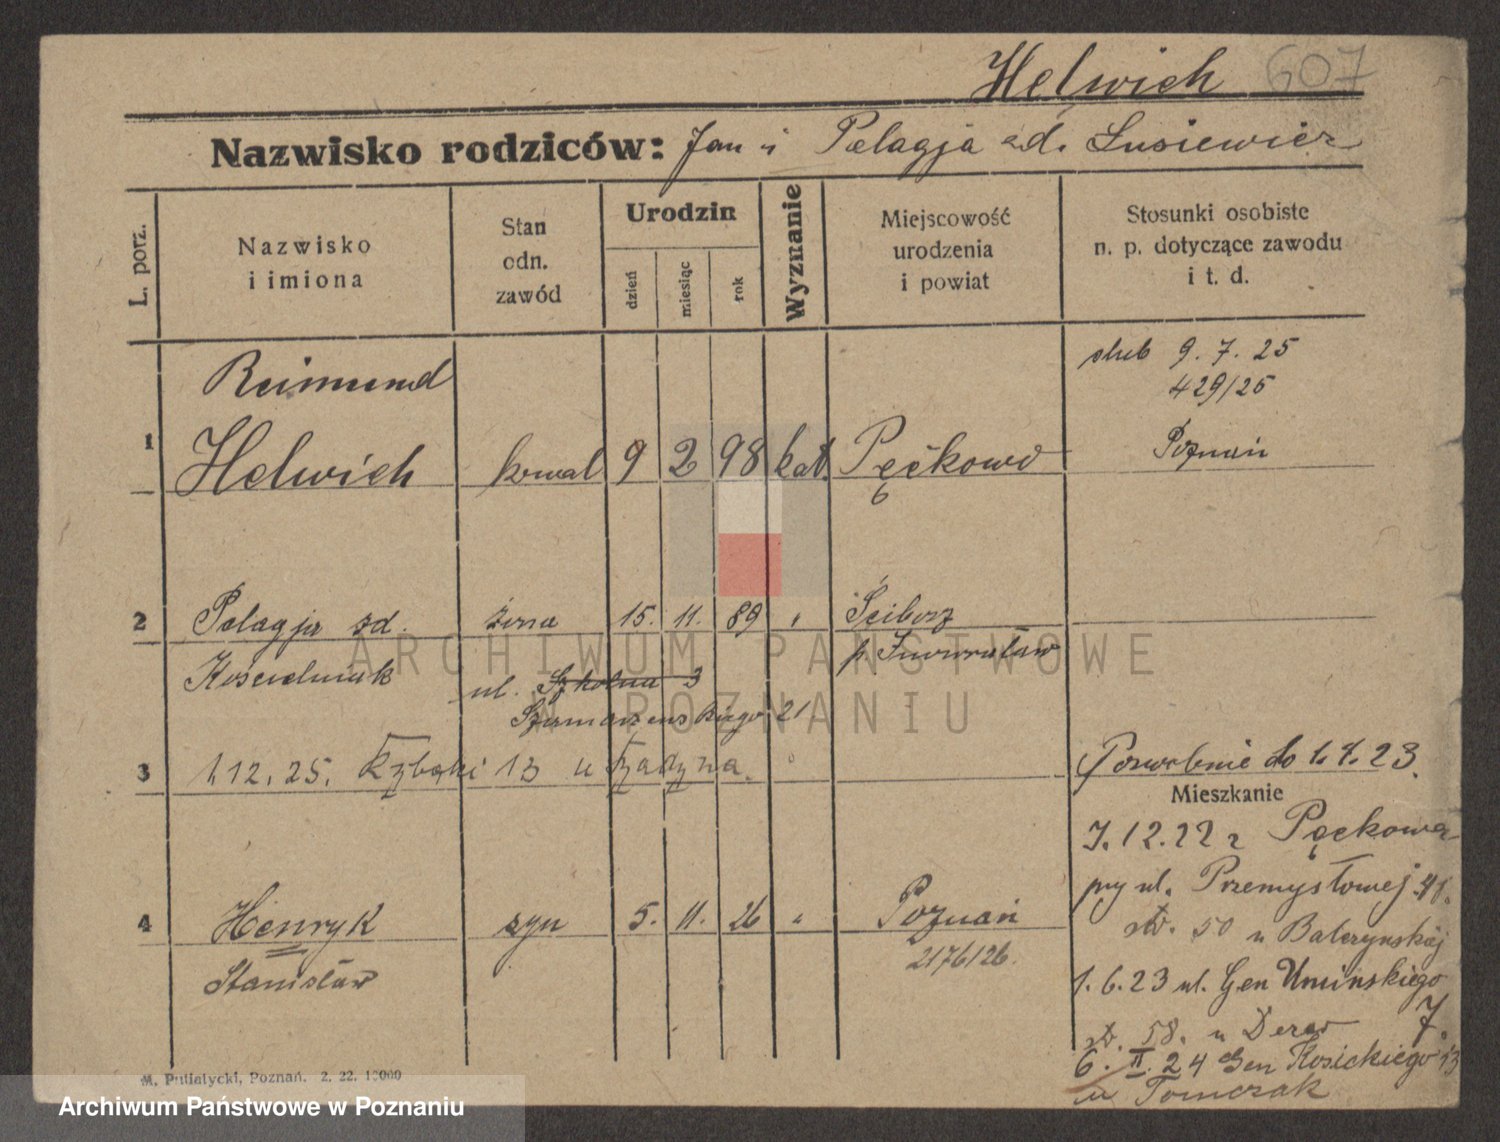 Helwich 607
Nazwisko rodziców: Jan i Pelagja zd. Łusiewicz
L. porz.
Nazwisko i imiona
Stan odn. zawód
Urodzin
dzień
miesiąc
rok
Wyznanie
Miejscowość urodzenia i powiat
Stosunki osobiste n. p. dotyczące zawodu i t. d.
ślub 9. 7. 25
429/25
Poznań
Reimund
1 Helwich kowal 9 2 98 kat. Pęckowo
2 Pelagja zd. żona 15. 11. 89 " Ściborz
Kościelniak p. Inowrocław
ul. Szkolna 3
Szamarzewskiego 21
3 1.12.25. Rybaki 13 u
Pozwolenie do 1.7.23.
Mieszkanie
7.12.22 z Pęckowa
przy ul. Przemysłowej 41.
str. 50 u
1.6.23 ul. Gen Umińskiego 7.
str. 58. u
6. II. 24 Gen Kosickiego 13
u Tomczak
4 Henryk syn 5. 11. 26 " Poznań
Stanisław 2176/26.
M. Putiatycki, Poznań. 2. 22. 10000
ARCHIWUM PAŃSTWOWE
W POZNANIU
Archiwum Państwowe w Poznaniu